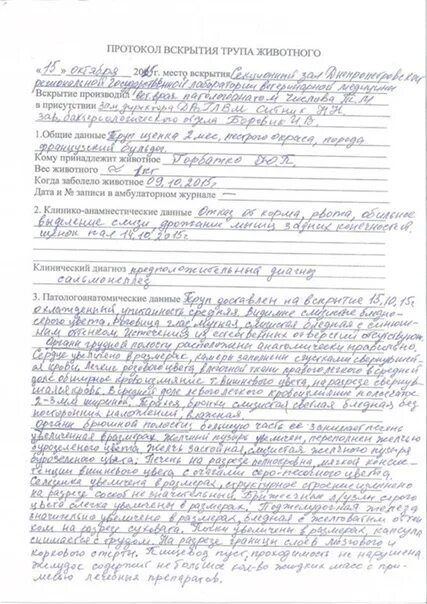 ПРОТОКОЛ ВСКРЫТИЯ ТРУПА ЖИВОТНОГО
« 15 » октября 2015г. место вскрытия Секционный зал Днепропетровской
региональной государственной лаборатории ветеринарной медицины
Вскрытие производил вет. врач патологоанатом Чистова Т.М
в присутствии зам директора ДРГЛВМ Ситник Н.Н,
зав. бактериологического отдела Боровик И.В.
1.Общие данные Труп щенка 2 мес, пестрого окраса, порода
французский бульдог.
Кому принадлежит животное Горбатко Ю.П.
Вес животного ≈ кг
Когда заболело животное 09.10.2015г
Дата и № записи в амбулаторном журнале —
2. Клинико-анамнестические данные Отказ от корма, рвота, обильное
выделение слюны дрожание мышц задних конечностей,
щенок пал 14.10.2015г.
Клинический диагноз предположительный диагноз
сальмонеллез
3. Патологоанатомические данные Труп доставлен на вскрытие 15.10.15г
охлажденный, упитанность средняя. Видимые слизистые бледно-
серого цвета. Роговица глаз мутная, слизистая бледная с синюшным
оттенком. Истечения из естественных отверстий отсутствуют.
Органы грудной полости расположены анатомически правильно.
Сердце увеличено в размерах, камеры заполнены сгустками свернувшейся
крови. Легкие розового цвета, в правого легкого в средней
доле обширное кровоизлияние т. вишневого цвета, на разрезе свернув-
шаяся кровь. В средней доле левого легкого кровоизлияние полосчатое
2-3мм шириной. Трахея, бронхи слизистая светлая бледная без
посторонних наложений, влажная.
Органы брюшной полости: большую часть ее занимает печень
увеличенная в размерах. Желчный пузырь увеличен, переполнен желчью
цвета. Желчь, слизистая желчного пузыря
цвета. Печень на разрезе полнокровна, мягкой консис-
тенции вишневого цвета с очагами серо-песочного цвета.
Селезенка увеличена в размерах, структурное строение изменено
на разрезе соскоб не значительный. Брыжеечные л/узлы серого
цвета слегка увеличены в размерах. Поджелудочная железа
значительно увеличена в размерах, бледная с желтоватым оттен-
ком на разрезе суховата. Почки увеличены в размерах, капсула
снимается с трудом. На разрезе границы слоев мозгового и
коркового стерты. Пищевод пуст, проходимость не нарушена
желудок содержит небольшое кол-во жидких масс с при-
месью лечебных препаратов.